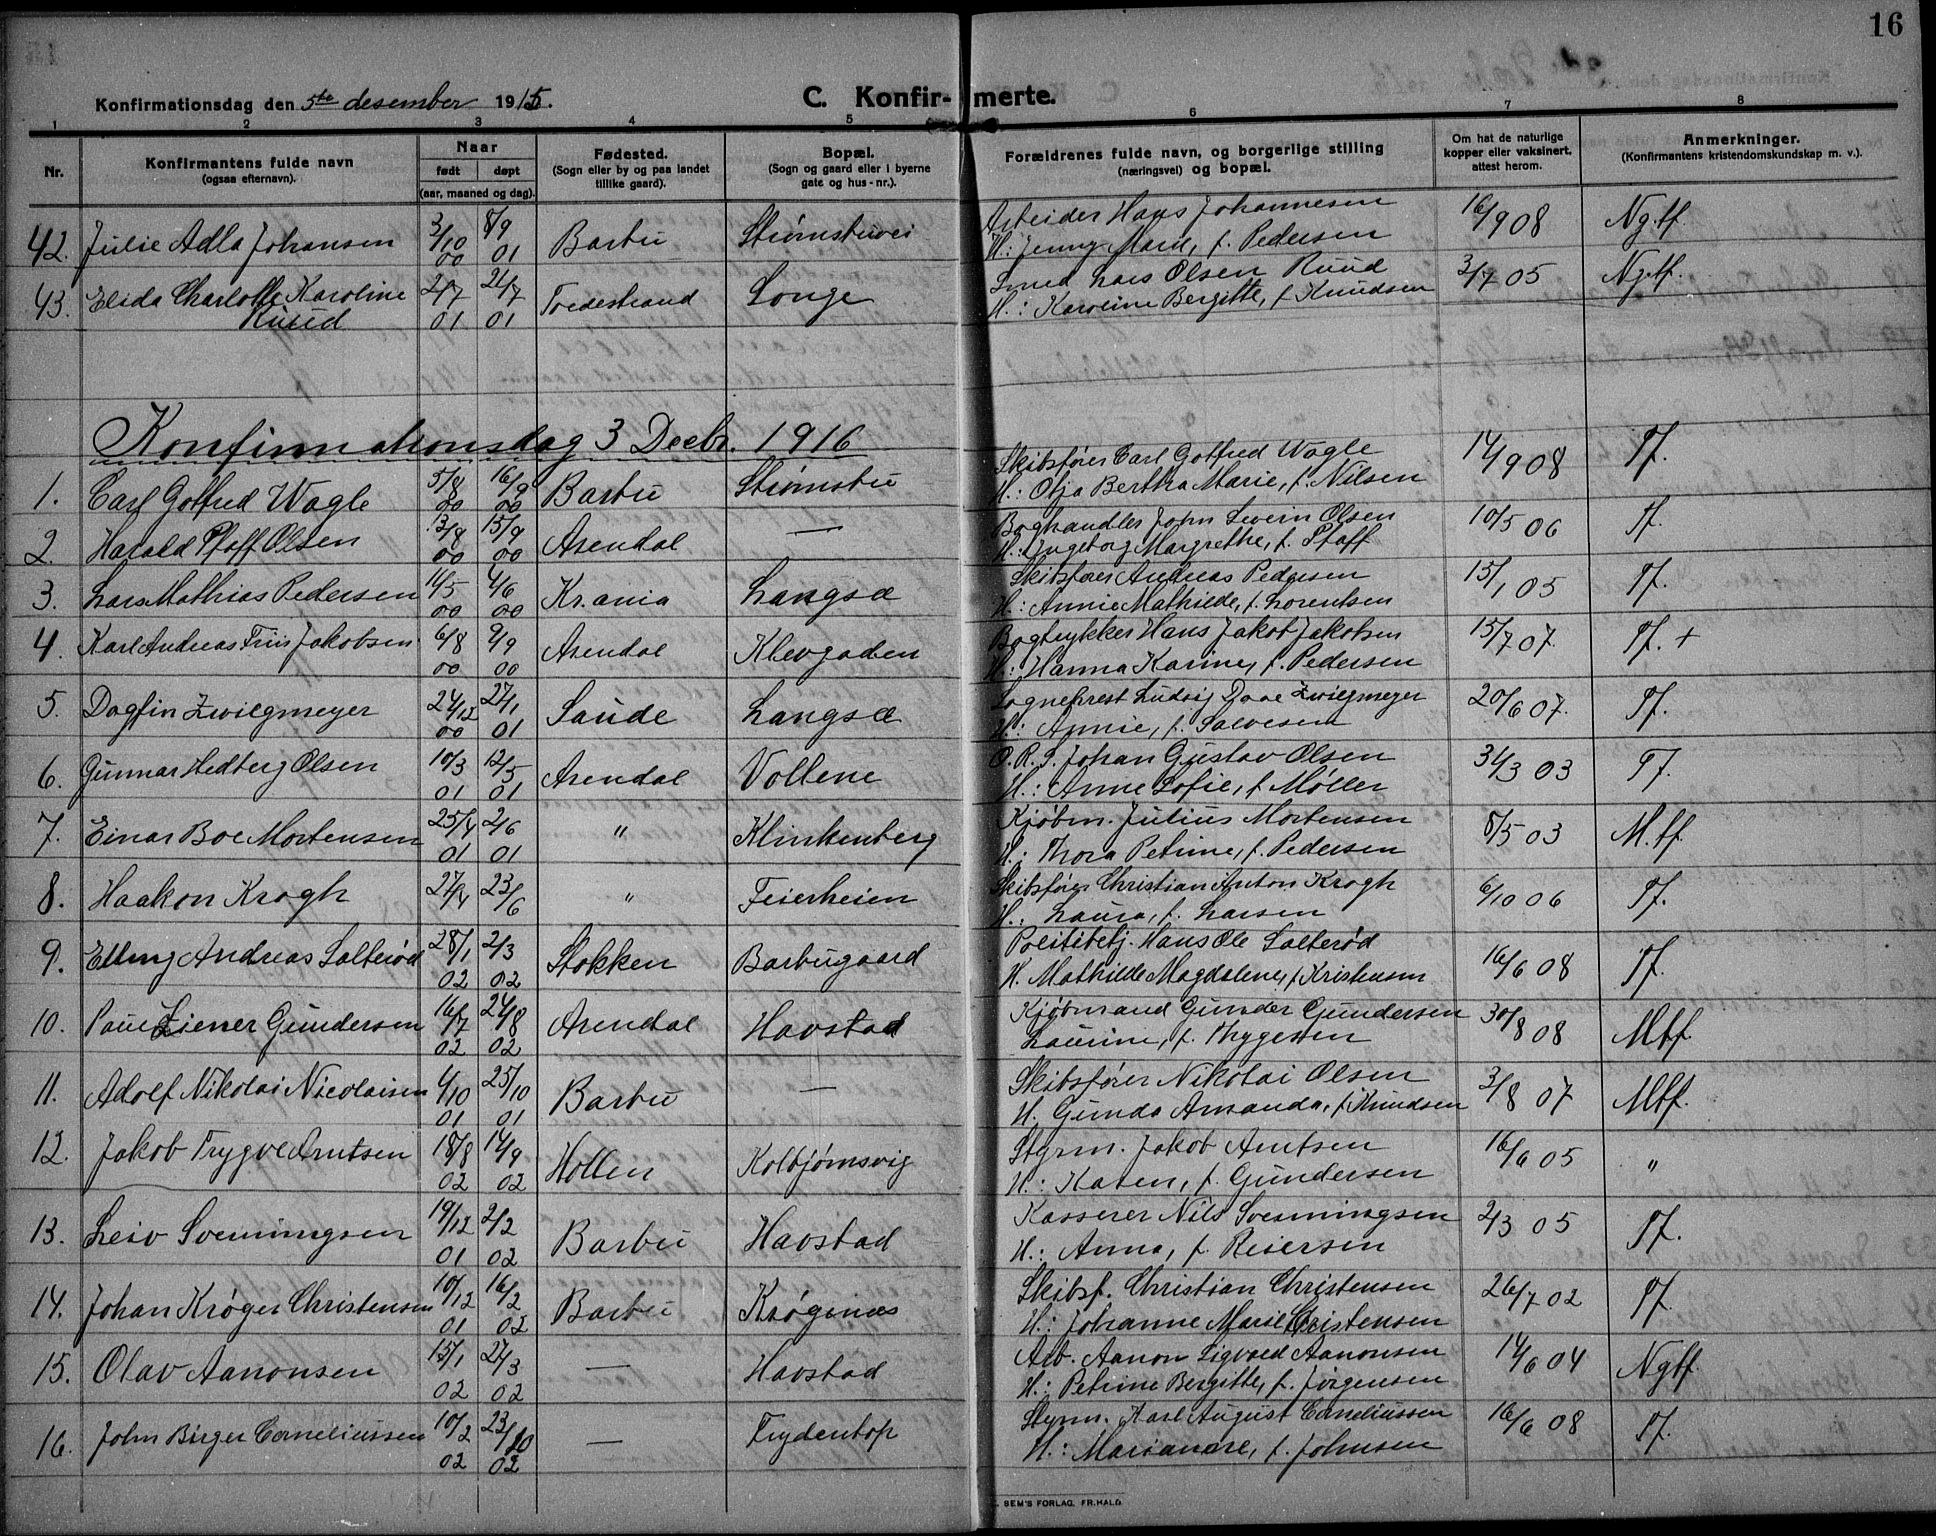 16
Konfirmationsdag den 5te desember 1915.
C. Konfir-merte.
1 2 3 4 5 6 7 8
Nr. Konfirmantens fulde navn (ogsaa efternavn). Naar født døpt (aar, maaned og dag). Fødested. (Sogn eller by og paa landet tillike gaard). Bopæl. (Sogn og gaard eller i byerne gate og hus-nr.). Forældrenes fulde navn, og borgerlige stilling (næringsvei) og bopæl. Om hat de naturlige kopper eller vaksinert, attest herom. Anmerkninger. (Konfirmantens kristendomskundskap m. v.).
42. Julie Adla Johansen 3/10 00 8/9 01 Barbu Strømsbuvei Arbeider Hans Johannesen 16/9 08 Ng.tf.
H: Jenny Marie, f. Pedersen
43. Elida Charlotte Karoline 2/7 01 21/7 01 Tvedestrand Songe Smed Lars Olsen Ruud 3/7 05 Ng.tf.
Ruud H: Karoline Bergitte, f. Knudsen
Konfirmationsdag 3 Decbr. 1916
1. Carl Gotfred Wagle 5/8 00 16/9 00 Barbu Strømsbu Skibsfører Carl Gotfred Wagle 14/9 08 Tf.
H: Olja Bertha Marie, f. Nilsen
2. Harald Pfaff Olsen 13/8 00 15/9 00 Arendal — Boghandler John Severin Olsen 10/5 06 Tf.
H: Ingeborg Margrethe, f. Pfaff
3. Lars Mathias Pedersen 11/5 00 4/6 00 Kr.ania Langsæ Skibsfører Andreas Pedersen 15/1 05 Tf.
H: Annie Mathilde, f. Lorentsen
4. Karl Andreas Friis Jakobsen 6/8 00 9/9 00 Arendal Klevgaden Bogtrykker Hans Jakob Jakobsen 15/7 07. Tf. +
H: Hanna Karine, f. Pedersen
5. Dagfin Zwilgmeyer 24/12 00 27/1 01 Saude Langsæ Sogneprest Ludvig Daae Zwilgmeyer 20/6 07. Tf.
H: Annie, f. Salvesen
6. Gunnar Hedberg Olsen 10/3 01 12/5 01 Arendal Vollene O.R.S. Johan Gustav Olsen 31/3 03 Tf.
H: Anne Sofie, f. Møller
7. Einar Boe Mortensen 25/4 01 2/6 01 " Klinkenberg Kjøbm. Julius Mortensen 8/5 03 M.tf.
H: Thora Petrine, f. Pedersen
8. Haakon Krogh 27/4 23/6 " Feierheien Skibsfører Christian Anton Krogh 6/10 06 Tf.
H: Laura, f. Larsen
9. Elling Andreas Salterød 28/1 02 2/3 02 Stokken Barbugaard Politibetj. Hans Ole Salterød 16/6 08 Tf.
H. Mathilde Magdalene, f Kristensen
10. Paul Ziener Gundersen 16/7 02 24/8 02 Arendal Havstad Kjøbmand Gunder Gundersen 30/8 08 Mtf.
Laurine, f. Thygesen
11. Adolf Nikolai Nicolaisen 4/10 01 25/10 01 Barbu — Skibsfører Nikolai Olsen 3/8 07 Mtf.
H. Gunda Amanda, f. Knudsen
12. Jakob Trygve Arntsen 18/8 02 14/9 02 Hollen Kolbjørnsvig Styrm. Jakob Arntsen 16/6 05 "
H: Karen, f. Gundersen
13. Leiv Svenningsen 19/12 01 2/2 02 Barbu Havstad Kasserer Nils Svenningsen 2/3 05 Tf.
H: Anna, f. Reiersen
14. Johan Krøger Christensen 10/12 01 16/2 02 Barbu Krøgenæs Skibsf. Christian Christensen 26/7 02 Tf.
H: Johanne Marie Christensen
15. Olav Aanonsen 15/1 02 27/3 02 — Havstad Arb. Aanon Sigvald Aanonsen 14/6 04 Ngtf.
H: Petrine Bergitte, f. Jørgensen
16. John Birger Corneliussen 10/2 02 23/10 02 — Frydentop Styrm. Karl August Corneliussen 16/6 08 Tf.
H: Marianne, f. Johnsen
SEM'S FORLAG, FR.HALD